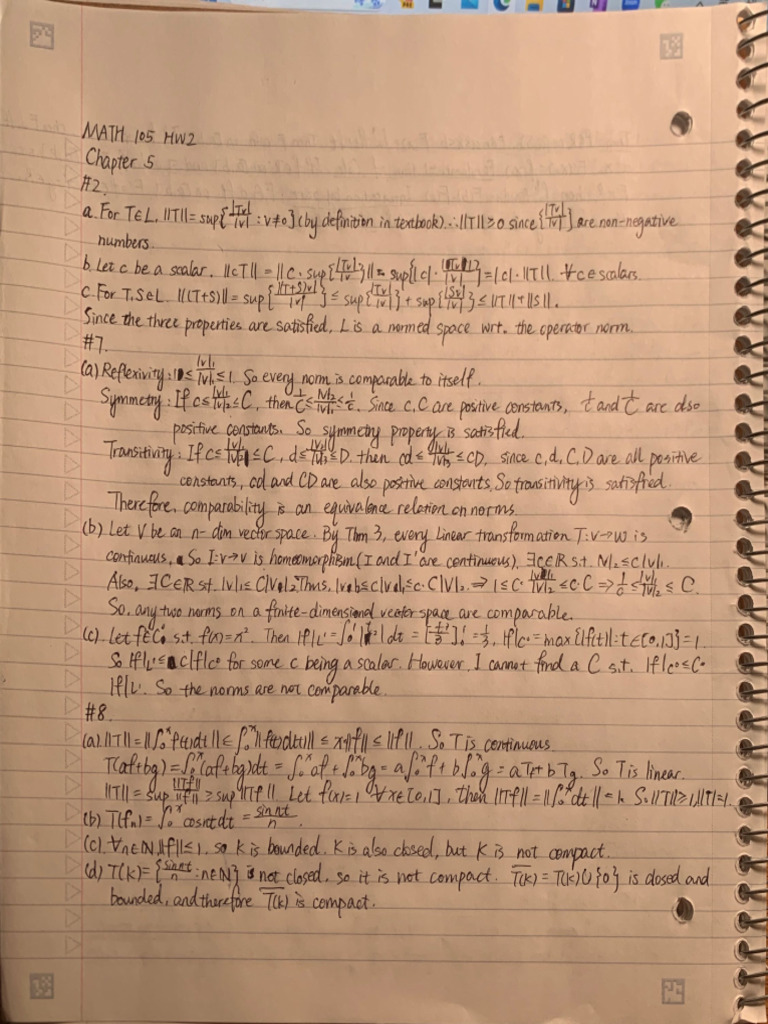 MATH 105 HW2
Chapter 5
#2.
a. For T∈L, ||T|| = sup{|Tv|/|v| : v≠0} (by definition in textbook). ∴ ||T|| ≥ 0 since {|Tv|/|v|} are non-negative
numbers.
b. Let c be a scalar. ||cT|| = ||c · sup{|Tv|/|v|}|| = sup{|c| · |Tv|/|v|} = |c| · ||T||. ∀c∈scalars.
c. For T,S∈L. ||(T+S)|| = sup{||(T+S)v|/|v|} ≤ sup{|Tv|/|v|} + sup{|Sv|/|v|} ≤ ||T||+||S||.
Since the three properties are satisfied, L is a normed space wrt. the operator norm.
#7.
(a) Reflexivity: 1 ≤ |v|₁/|v|₁ ≤ 1. So every norm is comparable to itself.
Symmetry: If c ≤ |v|₁/|v|₂ ≤ C, then 1/C ≤ |v|₂/|v|₁ ≤ 1/c. Since c, C are positive constants, 1/c and 1/C are also
positive constants. So symmetry property is satisfied.
Transitivity: If c ≤ |v|₁/|v|₂ ≤ C, d ≤ |v|₂/|v|₃ ≤ D. then cd ≤ |v|₁/|v|₃ ≤ CD, since c, d, C, D are all positive
constants, cd and CD are also positive constants. So transitivity is satisfied.
Therefore, comparability is an equivalence relation on norms.
(b) Let V be an n-dim vector space. By Thm 3, every Linear transformation T: v→w is
continuous. So I: v→v is homeomorphism (I and I⁻¹ are continuous). ∃c∈ℝ s.t. |v|₂ ≤ c|v|₁.
Also, ∃C∈ℝ s.t. |v|₁ ≤ C|v|₂. Thus, |v|₂ ≤ c|v|₁ ≤ c·C|v|₂. ⇒ 1 ≤ c · |v|₁/|v|₂ ≤ c·C ⇒ 1/c ≤ |v|₁/|v|₂ ≤ C.
So, any two norms on a finite-dimensional vector space are comparable.
(c). Let f∈C⁰ s.t. f(x) = x². Then |f|L¹ = ∫₀¹ |t²| dt = [t³/3]₀¹ = 1/3, |f|C⁰ = max{|f(t)| : t∈[0,1]} = 1.
So |f|L¹ ≤ c|f|C⁰ for some c being a scalar. However, I cannot find a C s.t. |f|C⁰ ≤ C·
|f|L¹. So the norms are not comparable.
#8.
(a). ||T|| = ||∫₀ˣ f(t)dt|| ≤ ∫₀ˣ ||f(t)dt|| ≤ x·||f|| ≤ ||f||. So T is continuous
T(af+bg) = ∫₀ˣ (af+bg)dt = ∫₀ˣ af + ∫₀ˣ bg = a∫₀ˣ f + b∫₀ˣ g = aTf + bTg. So T is linear.
||T|| = sup ||Tf||/||f|| ≥ sup ||Tf||. Let f(x)=1 ∀x∈[0,1], then ||Tf|| = ||∫₀ˣ dt|| = 1. So ||T|| ≥ 1, ||T||=1.
(b) T(fₙ) = ∫₀ˣ cosnt dt = sin nt/n.
(c). ∀n∈ℕ ||f|| ≤ 1, so K is bounded. K is also closed, but K is not compact.
(d) T(K) = {sin nt/n : n∈ℕ} is not closed, so it is not compact. T̅(̅K̅)̅ = T(K)∪{0} is closed and
bounded, and therefore T̅(̅K̅)̅ is compact.